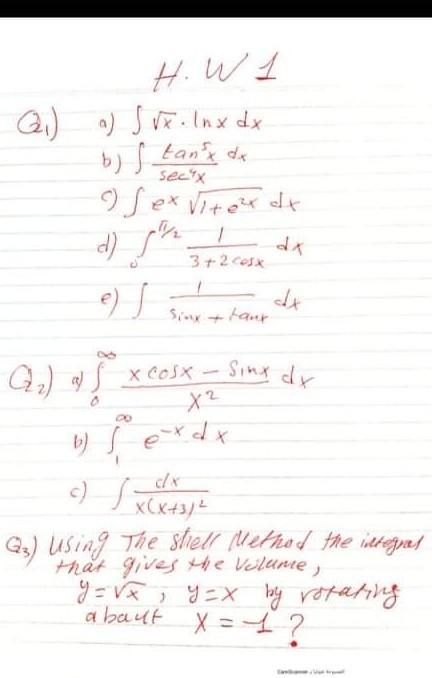 H.W 1
Q1) a) ∫ √x · lnx dx
b) ∫ tan⁵x / sec⁴x dx
c) ∫ eˣ √1+e²ˣ dx
d) ∫₀^π/2 1 / 3+2cosx dx
e) ∫ 1 / Sinx + tanx dx
Q2) a) ∫₀^∞ x cosx – Sinx / x² dx
b) ∫₁^∞ e⁻ˣ dx
c) ∫ dx / x(x+3)²
Q3) Using The shell Method the integral
that gives the Volume,
y=√x , y=x by rotating
abaut x = -1 ?